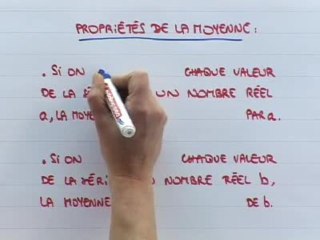 PROPRIÉTÉS DE LA MOYENNE :
. SI ON CHAQUE VALEUR
DE LA UN NOMBRE RÉEL
a, LA PAR a.
. SI ON CHAQUE VALEUR
DE LA NOMBRE RÉEL b,
LA MOYENNE DE b.